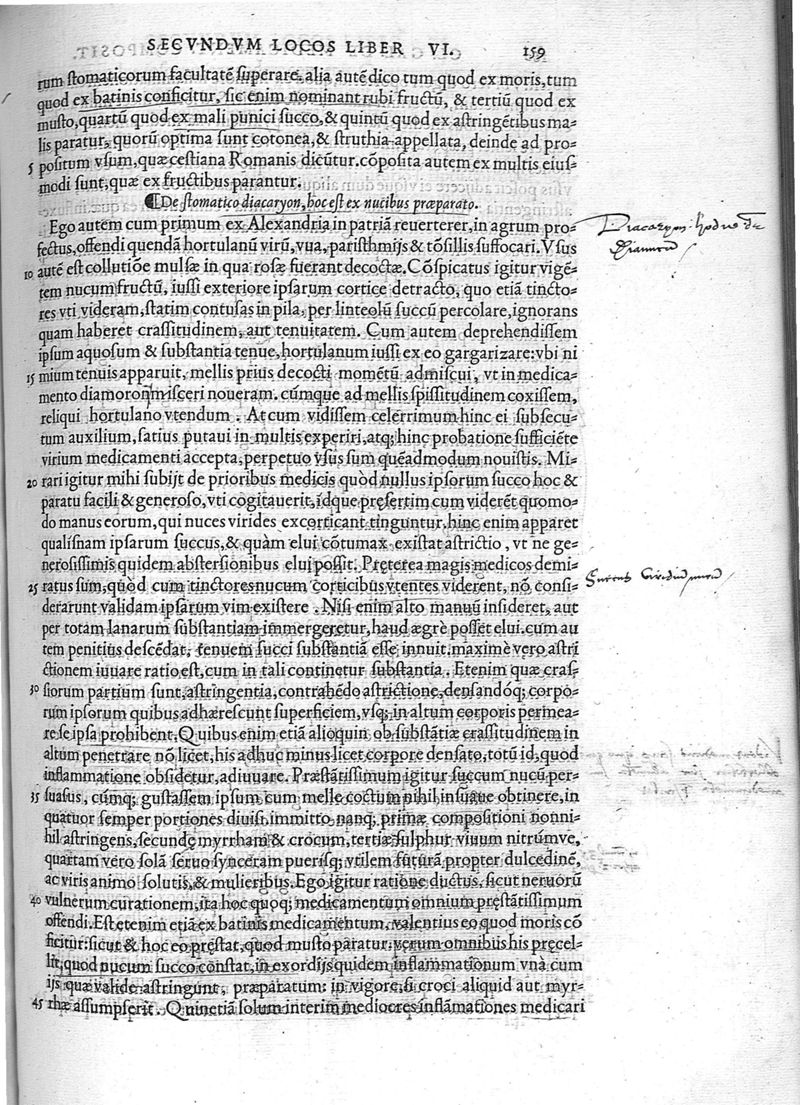 SECVNDVM LOCOS LIBER VI. 159
rum stomaticorum facultatē superare, alia autē dico tum quod ex moris, tum
quod ex batinis conficitur, sic enim nominant rubi fructū, & tertiū quod ex
musto, quartū quod ex mali punici succo, & quintū quod ex astringētibus ma-
lis paratur, quorū optima sunt cotonea, & struthia appellata, deinde ad pro-
5 positum vsum, quæ cestiana Romanis dicūtur. cōposita autem ex multis eius-
modi sunt, quæ ex fructibus parantur.
De stomatico diacaryon, hoc est ex nucibus præparato.
Ego autem cum primum ex Alexandria in patriā reuerterer, in agrum pro-
fectus, offendi quendā hortulanū virū, vua, paristhmijs & tōsillis suffocari. Vsus
10 autē est collutiōe mulsæ in qua rosæ fuerant decoctæ. Cōspicatus igitur vigē-
tem nucum fructū, iussi exteriore ipsarum cortice detracto, quo etiā tincto-
res vti videram, statim contusas in pila, per linteolū succū percolare, ignorans
quam haberet crassitudinem, aut tenuitatem. Cum autem deprehendissem
ipsum aquosum & substantia tenue, hortulanum iussi ex eo gargarizare: vbi ni
15 mium tenuis apparuit, mellis prius decocti momētū admiscui, vt in medica-
mento diamorōn misceri noueram. cúmque ad mellis spissitudinem coxissem,
reliqui hortulano vtendum. At cum vidissem celerrimum hinc ei subsecu-
tum auxilium, satius putaui in multis experiri, atq; hinc probatione sufficiēte
virium medicamenti accepta, perpetuo vsus sum quēadmodum nouistis. Mi-
20 rari igitur mihi subijt de prioribus medicis quòd nullus ipsorum succo hoc &
paratu facili & generoso, vti cogitauerit, idque pręsertim cum viderēt quomo-
do manus eorum, qui nuces virides excorticant tinguntur, hinc enim apparet
qualisnam ipsarum succus, & quàm elui cōtumax existat astrictio, vt ne ge-
nerosissimis quidem abstersionibus elui possit. Pręterea magis medicos demi-
25 ratus sum, quòd cum tinctores nucum corticibus vtentes viderent, nō consi-
derarunt validam ipsarum vim existere. Nisi enim alto manuū insideret, aut
per totam lanarum substantiam immergeretur, haud ægrè posset elui. cum au
tem penitius descēdat, tenuem succi substantiā esse innuit, maximè vero astri
ctionem iuuare ratio est, cum in tali continetur substantia. Etenim quæ cras-
30 siorum partium sunt, astringentia, contrahēdo astrictione, densandóq; corpo-
rum ipsorum quibus adhærescunt superficiem, vsq; in altum corporis permea-
re se ipsa prohibent. Quibus enim etiā alioquin ob substātiæ crassitudinem in
altum penetrare nō licet, his adhuc minus licet corpore densato, totū id, quod
inflammatione obsidetur, adiuuare. Præstātissimum igitur succum nucū per-
35 suasus, cúmq; gustassem ipsum cum melle coctum nihil insuaue obtinere, in
quatuor semper portiones diuisi, immitto nanq; primæ compositioni nonni-
hil astringens, secundę myrrham & crocum, tertiæ sulphur viuum nitrúmve,
quartam vero solā seruo synceram puerisq; vtilem futurā propter dulcedinē,
ac viris animo solutis, & mulieribus. Ego igitur ratione ductus, sicut neruorū
40 vulnerum curationem, ita hoc quoq; medicamentum omnium pręstātissimum
offendi. Est etenim etiā ex batinis medicamentum, valentius eo quod moris cō
ficitur: sicut & hoc eo pręstat, quod musto paratur: verum omnibus his pręcel-
lit, quod nucum succo constat, in exordijs quidem inflammationum vnà cum
ijs quæ valide astringunt, præparatum: in vigore, si croci aliquid aut myr-
45 rhæ assumpserit. Quinetiā solum interim mediocres inflāmationes medicari
Succus viridiū nucū